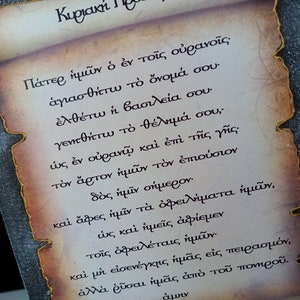 Κυριακή
Πάτερ ἡμῶν ὁ ἐν τοῖς οὐρανοῖς·
ἁγιασθήτω τὸ ὄνομά σου·
ἐλθέτω ἡ βασιλεία σου·
γενηθήτω τὸ θέλημά σου,
ὡς ἐν οὐρανῷ καὶ ἐπὶ τῆς γῆς·
τὸν ἄρτον ἡμῶν τὸν ἐπιούσιον
δὸς ἡμῖν σήμερον·
καὶ ἄφες ἡμῖν τὰ ὀφειλήματα ἡμῶν,
ὡς καὶ ἡμεῖς ἀφίεμεν
τοῖς ὀφειλέταις ἡμῶν·
καὶ μὴ εἰσενέγκῃς ἡμᾶς εἰς πειρασμόν,
ἀλλὰ ῥῦσαι ἡμᾶς ἀπὸ τοῦ πονηροῦ.
ἀμήν